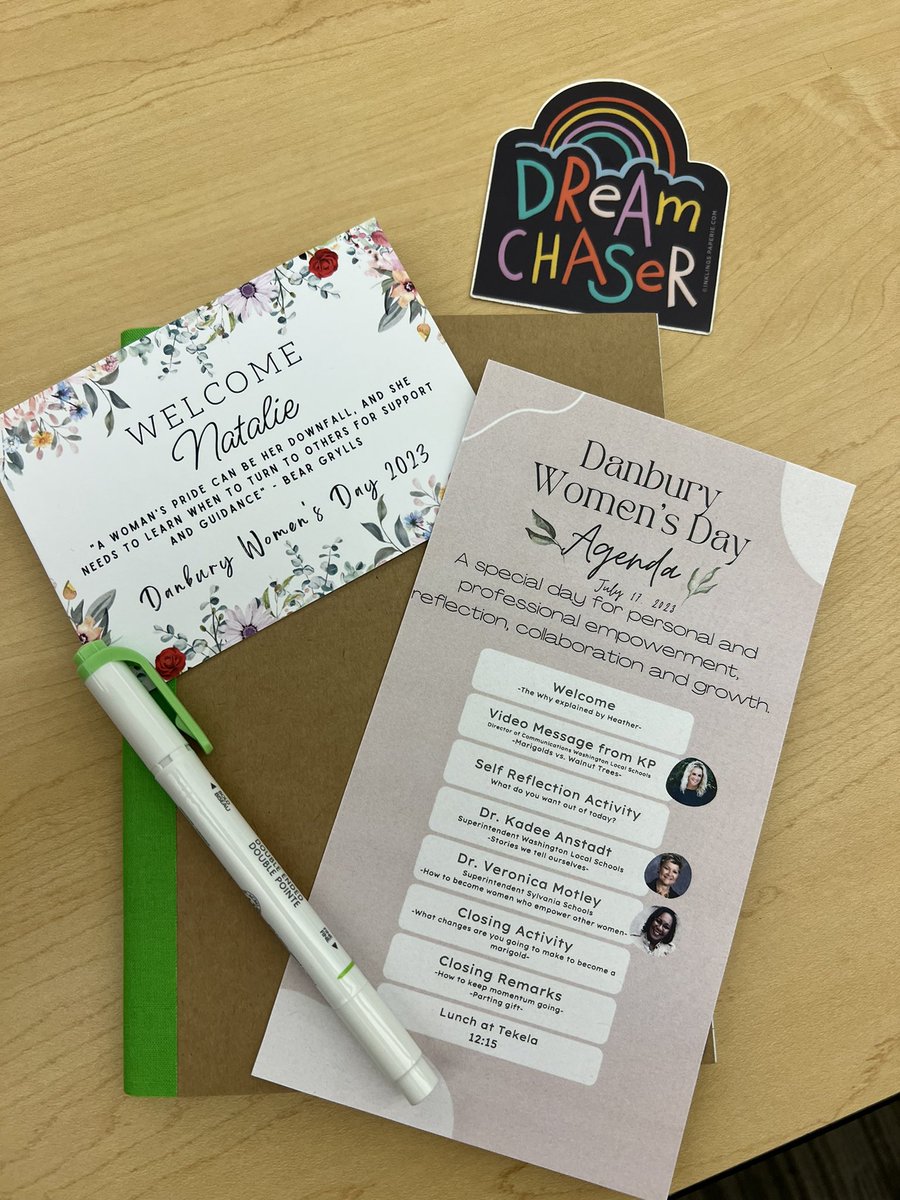 DREAM
CHASER
©INKLINGS PAPERIE.COM
WELCOME
Natalie
"A WOMAN'S PRIDE CAN BE HER DOWNFALL, AND SHE
NEEDS TO LEARN WHEN TO TURN TO OTHERS FOR SUPPORT
AND GUIDANCE" - BEAR GRYLLS
Danbury Women's Day 2023
Danbury
Women's Day
Agenda
July 17, 2023
A special day for personal and
professional empowerment,
reflection, collaboration and growth.
Welcome
-The Why explained by Heather-
Video Message from KP
Director of Communications Washington Local Schools
-Marigolds vs. Walnut Trees-
Self Reflection Activity
What do you want out of today?
Dr. Kadee Anstadt
Superintendent Washington Local Schools
-Stories we tell ourselves-
Dr. Veronica Motley
Superintendent Sylvania Schools
-How to become women who empower other women-
Closing Activity
-What changes are you going to make to become a
marigold-
Closing Remarks
-How to keep momentum going-
-Parting gift-
Lunch at Tekela
12:15
DOUBLE ENDED
DOUBLE POINTE